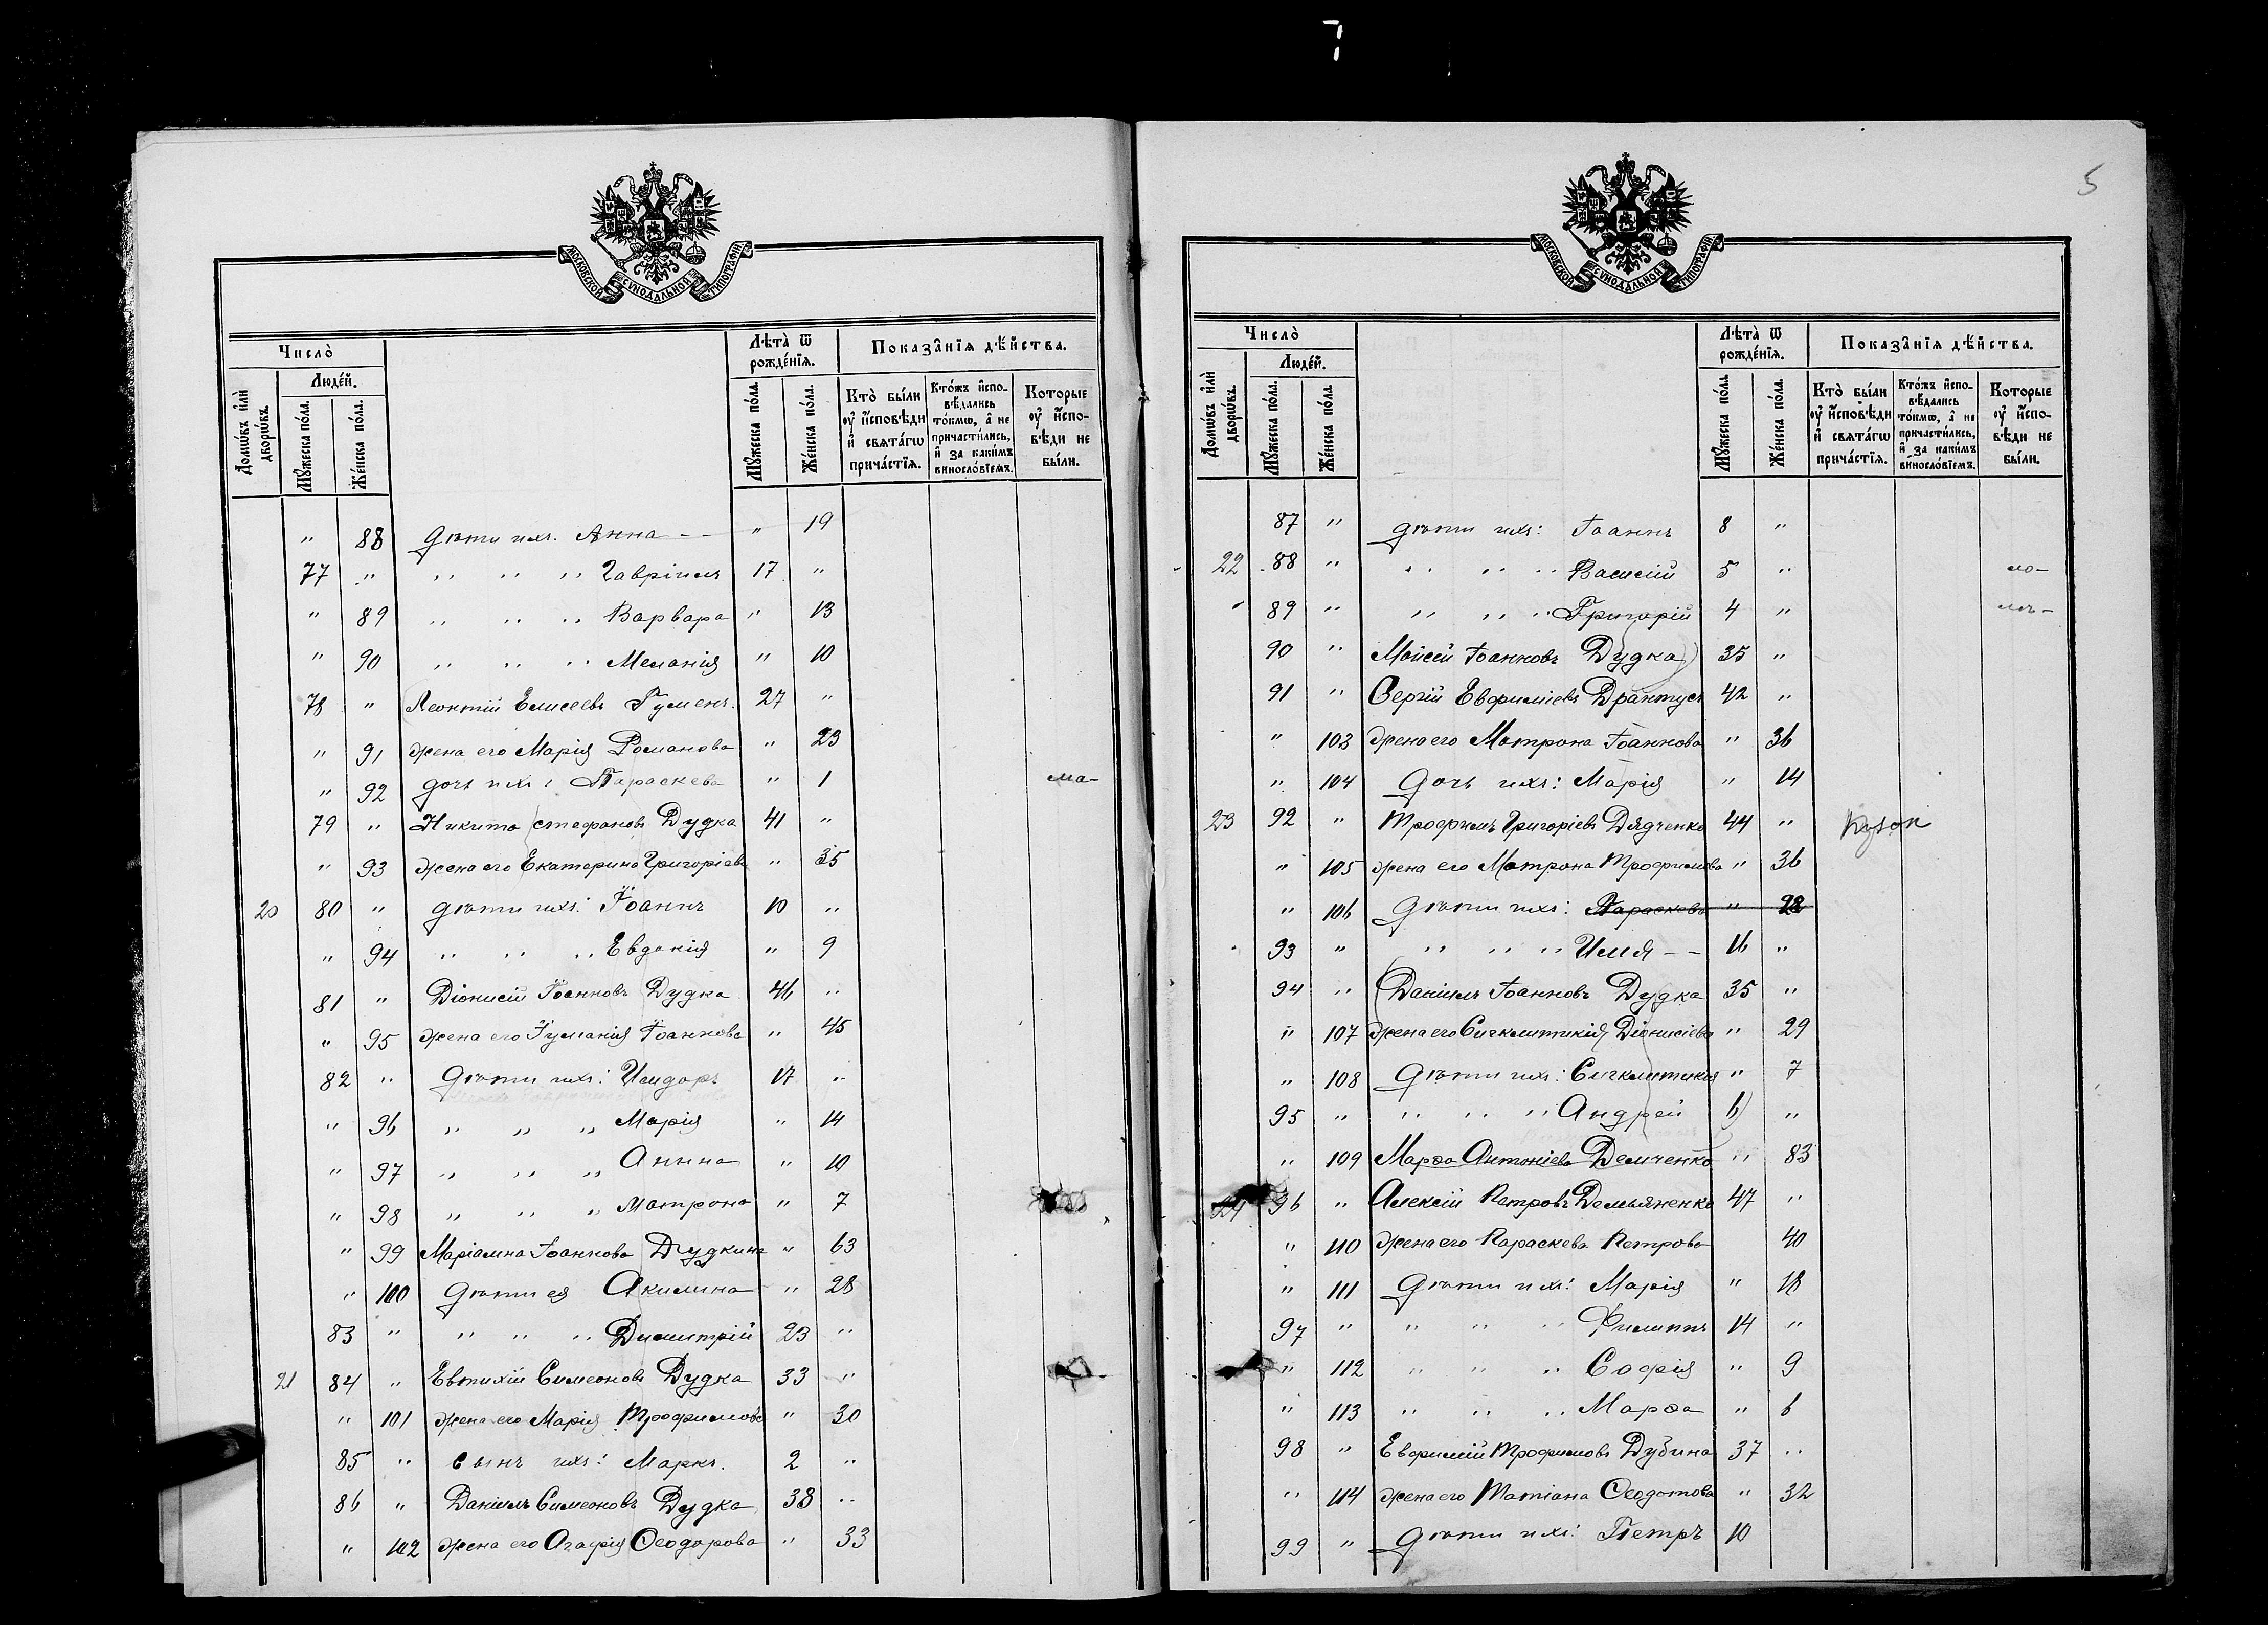 7
5
МОСКОВСКОЙ СѴНОДАЛЬНОЙ ТИПОГРАФІИ
Число̀
Людей.
Домѡвъ и҆лѝ дворѡвъ.
Мꙋжеска по́ла.
Же́нска по́ла.
Лѣта̀ ѿ рожде́нїѧ.
Мꙋжеска по́ла.
Же́нска по́ла.
Показа̑нїѧ дѣ́йства.
Кто̀ бы́ли ᲂу҆ и҆сповѣди и҆ свѧта́гѡ прича́стїѧ.
Кто́жъ и҆спо-вѣдались то́кмѡ, а҆ не причасти́лись, и҆ за каки́мъ винословїемъ.
Которые ᲂу҆ и҆спо-вѣди не бы́ли.
" 88 дѣти ихъ. Анна -- " 19
77 " " " " Гавріилъ 17 "
" 89 " " " Варвара " 13
" 90 " " " Меланія " 10
78 " Леонтій Елисеевъ Гуменъ. 27 "
" 91 жена его Марія Романова " 23
" 92 дочь ихъ: Параскева " 1 ма-
79 " Никита Стефановъ Дудка 41 "
" 93 жена его Екатерина Григоріева " 35
20 80 " дѣти ихъ: Іоаннъ 10 "
" 94 " " " Евдокія " 9
81 " Діонисій Іоанновъ Дудка 46 "
" 95 жена его Іуліанія Іоаннова " 45
82 " дѣти ихъ: Исидоръ 17 "
" 96 " " " Марія " 14
" 97 " " " Анна " 10
" 98 " " " Матрона " 7
" 99 Маріамна Іоаннова Дудкина " 63
" 100 дѣти ея Акилина " 28
83 " " " " Димитрій 23 "
21 84 " Евтихій Симеоновъ Дудка 33 "
" 101 жена его Марія Трофимова " 30
85 " сынъ ихъ: Маркъ. 2 "
86 " Даніилъ Симеоновъ Дудка 38 "
" 102 жена его Агафія Ѳеодорова " 33
МОСКОВСКОЙ СѴНОДАЛЬНОЙ ТИПОГРАФІИ
Число̀
Людей.
Домѡвъ и҆лѝ дворѡвъ.
Мꙋжеска по́ла.
Же́нска по́ла.
Лѣта̀ ѿ рожде́нїѧ.
Мꙋжеска по́ла.
Же́нска по́ла.
Показа̑нїѧ дѣ́йства.
Кто̀ бы́ли ᲂу҆ и҆сповѣди и҆ свѧта́гѡ прича́стїѧ.
Кто́жъ и҆спо-вѣдались то́кмѡ, а҆ не причасти́лись, и҆ за каки́мъ винословїемъ.
Которые ᲂу҆ и҆спо-вѣди не бы́ли.
87 " дѣти ихъ: Іоаннъ 8 "
22 88 " " " " Василій 5 "
89 " " " " Григорій 4 "
90 " Моисей Іоанновъ Дудка 35 "
91 " Сергій Евфиміевъ Драптусъ 42 "
" 103 жена его Матрона Іоаннова " 36
" 104 Дочь ихъ: Марія " 14
23 92 " Трофимъ Григоріевъ Дядченко 44 "
" 105 жена его Матрона Трофимова " 36
" 106 дѣти ихъ: Параскева " 22
93 " " " " Илія -- 16 "
94 " Даніилъ Іоанновъ Дудка 35 "
" 107 жена его Сигклитикія Діонисіева " 29
" 108 дѣти ихъ: Сигклитикія " 7
95 " " " " Андрей 6 "
" 109 Марѳа Антоніева Демченко " 83
24 96 " Алексій Петровъ Демьяненко 47 "
" 110 жена его Параскева Петрова 40
" 111 дѣти ихъ: Марія " 18
97 " " " " Филиппъ 14 "
" 112 " " " Софія " 9
" 113 " " " Марѳа " 6
98 " Евфимій Трофимовъ Дубина 37 "
" 114 жена его Татіана Ѳеодотова " 32
99 " дѣти ихъ: Петръ 10